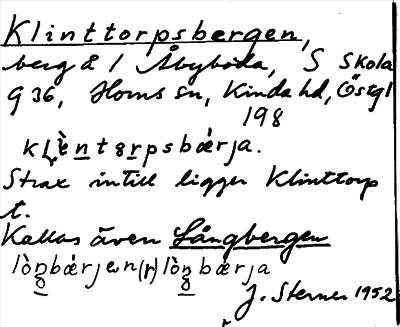 Klinttorpsbergen,
berg å 1 Åbyboda, S Skola
936, Horns sn, Kinda hd, Östgl
198
kḷèntorpsbǽrja.
Strax intill ligger Klinttorp
t.
Kallas även Långbergen
lòngbǽrjen(r) lòngbǽrja
J. Sterner 1952